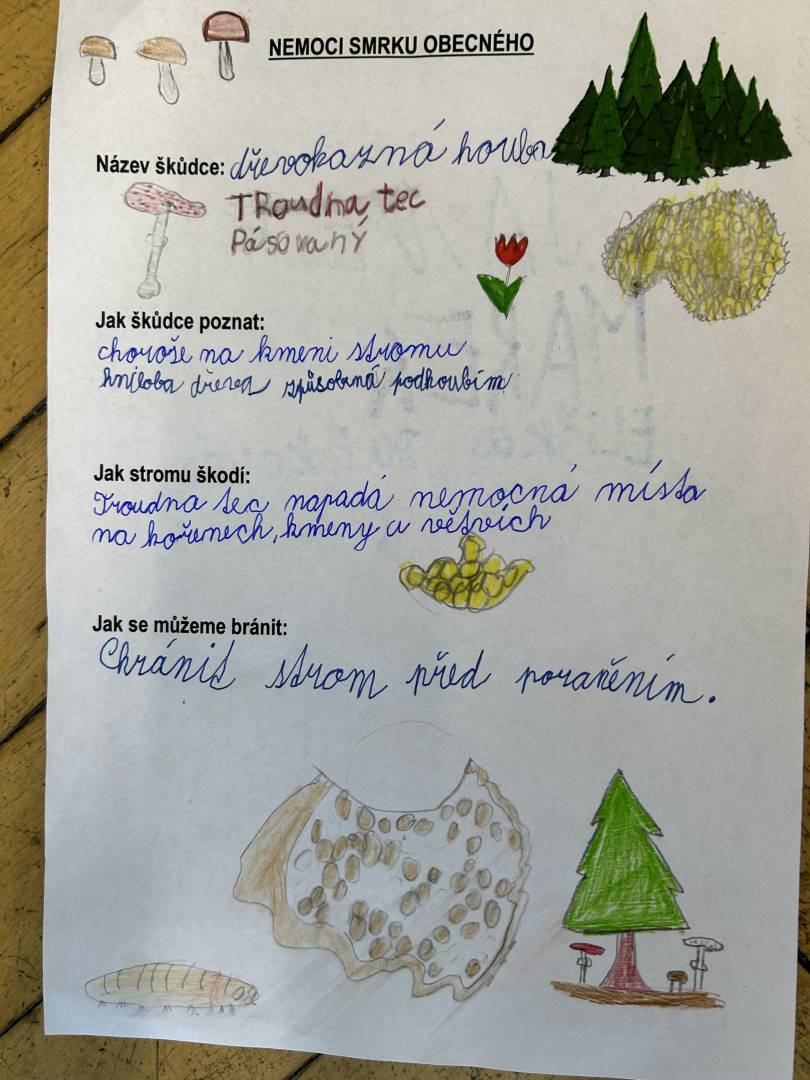 NEMOCI SMRKU OBECNÉHO
Název škůdce: dřevokazná houba
TRoudna tec
PásovaNÝ
Jak škůdce poznat:
choroše na kmeni stromu
hniloba dřeva způsobená podhoubím
Jak stromu škodí:
Troudna tec napadá nemocná místa
na kořenech, kmeny a větvích
Jak se můžeme bránit:
Chránit strom před poraněním.
MAREK